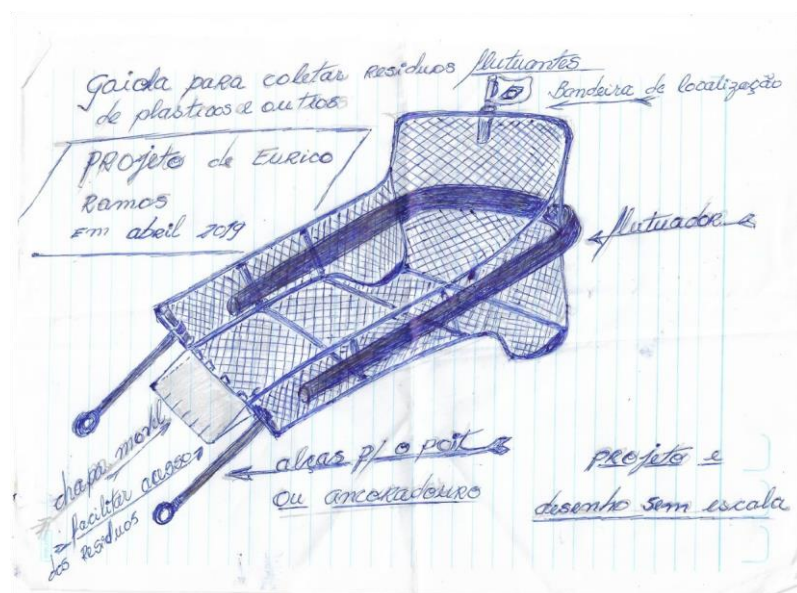 Gaiola para coletar Residuos flutuantes
de plasticos e outros
Bandeira de localização
PROJeto de EURICO
Ramos
Em abril 2019
flutuador
chapa movil
facilitar acesso
dos Residuos
alças p/ o poit
OU ancoradouro
PROJeto e
desenho sem escala